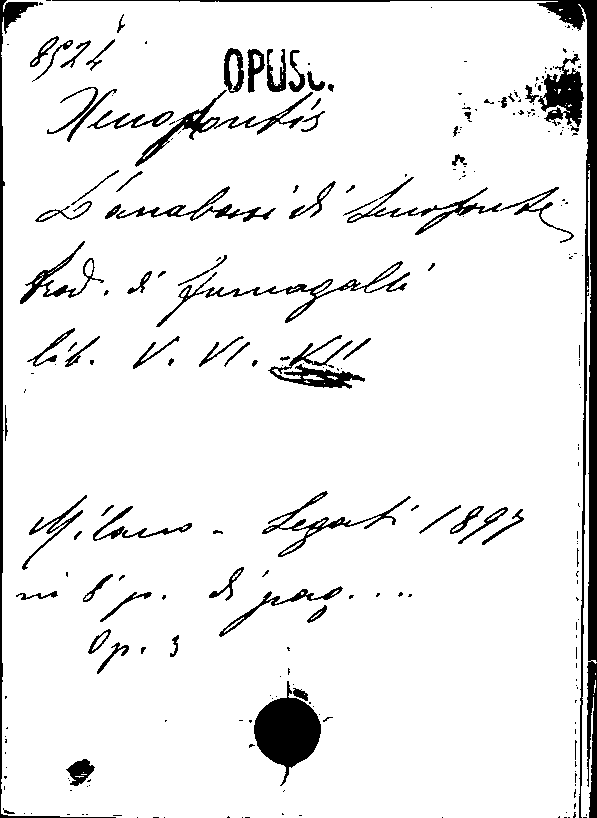 8524
OPUSC.
Xenophontis
L'anabasi di Senofonte
trad. di Fumagalli
lib. V. VI. VII
Milano - Legati 1897
in 8° p. di pag. ....
Op. 3